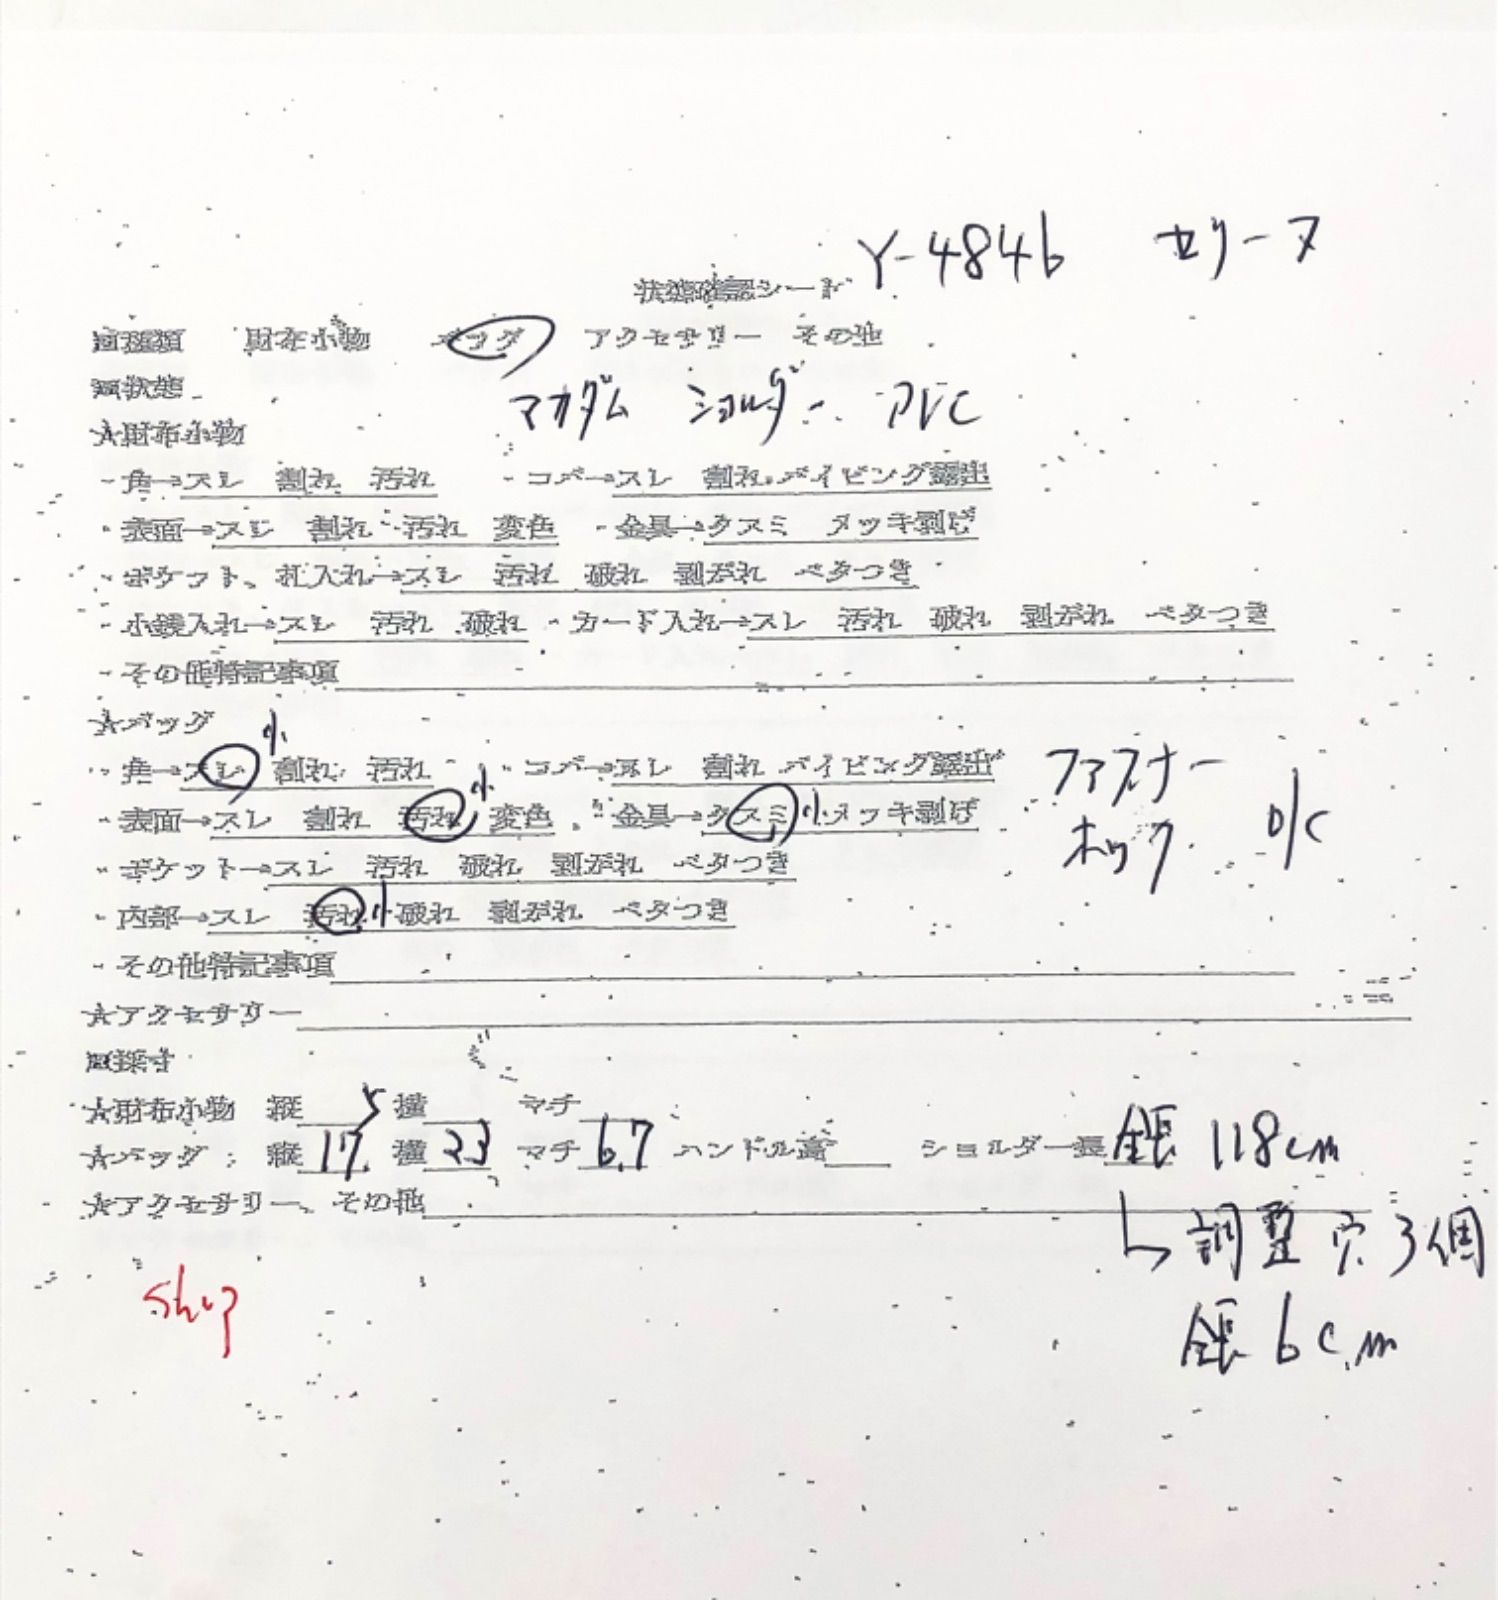 Y-4846 セリーヌ
状態確認シート
■種類 財布小物 バッグ アクセサリー その他
■状態
マカダム ショルダー PVC
★財布小物
・角→スレ 割れ 汚れ ・コバ→スレ 割れ パイピング露出
・表面→スレ 割れ 汚れ 変色 ・金具→クスミ メッキ剥げ
・ポケット、札入れ→スレ 汚れ 破れ 剥がれ ベタつき
・小銭入れ→スレ 汚れ 破れ ・カード入れ→スレ 汚れ 破れ 剥がれ ベタつき
・その他特記事項
★バッグ
・角→スレ 小 割れ 汚れ ・コバ→スレ 割れ パイピング露出
・表面→スレ 割れ 汚れ 小 変色 ・金具→クスミ 小 メッキ剥げ
ファスナー
ホック O/C
・ポケット→スレ 汚れ 破れ 剥がれ ベタつき
・内部→スレ 汚れ 小 破れ 剥がれ ベタつき
・その他特記事項
★アクセサリー
■採寸
★財布小物 縦 横 マチ
★バッグ 縦17.5 横23 マチ6.7 ハンドル高 ショルダー長 全長 118cm
★アクセサリー、その他
↳調整穴3個
全長6cm
shop